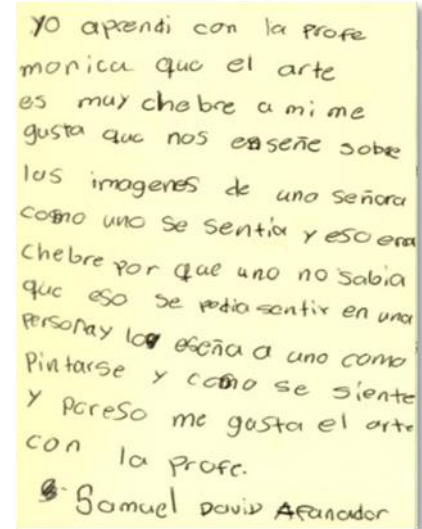 yo aprendi con la profe
monica que el arte
es muy chebre a mi me
gusta que nos enseñe sobre
las imagenes de una señora
como uno se sentia y eso era
chebre por que uno no sabia
que eso se podia sentir en una
persona y los eseña a uno como
Pintarse y como se siente
y poreso me gusta el arte
con la profe.
Samuel David Afanador